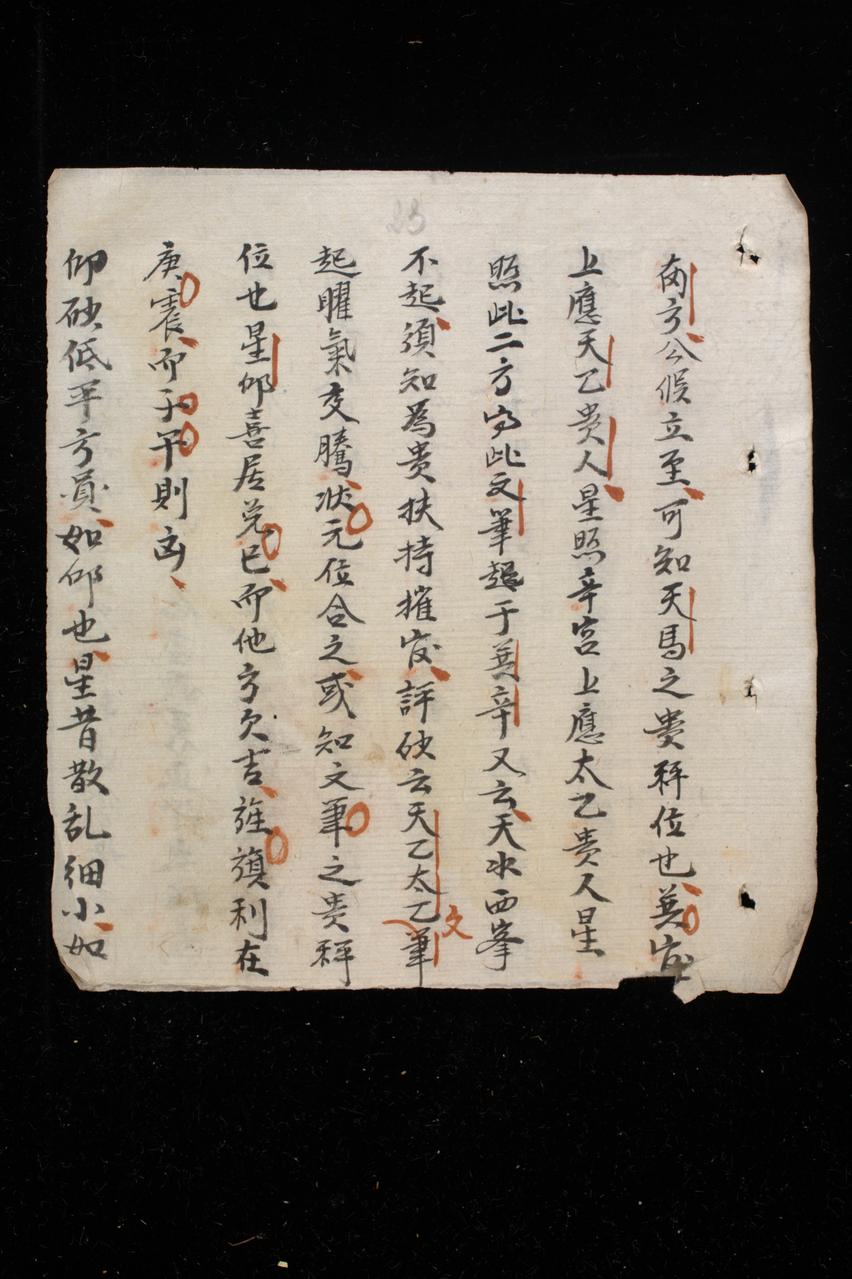 南方公候立至可知天馬之贵秤位也巽宫
上應天乙贵人星照辛宫上應太乙贵人星
照此二方宁此文筆起于巽辛又云天水西峯
不起須知為贵扶持摧官評砂云天乙太乙文筆
起曜氣交騰状元位合之或知文筆之贵秤
位也星卯喜居兑巳而他方欠吉旌旗利在
庚震而子午則凶
卯砂低平方員如卯也星昔散乱细小如
23